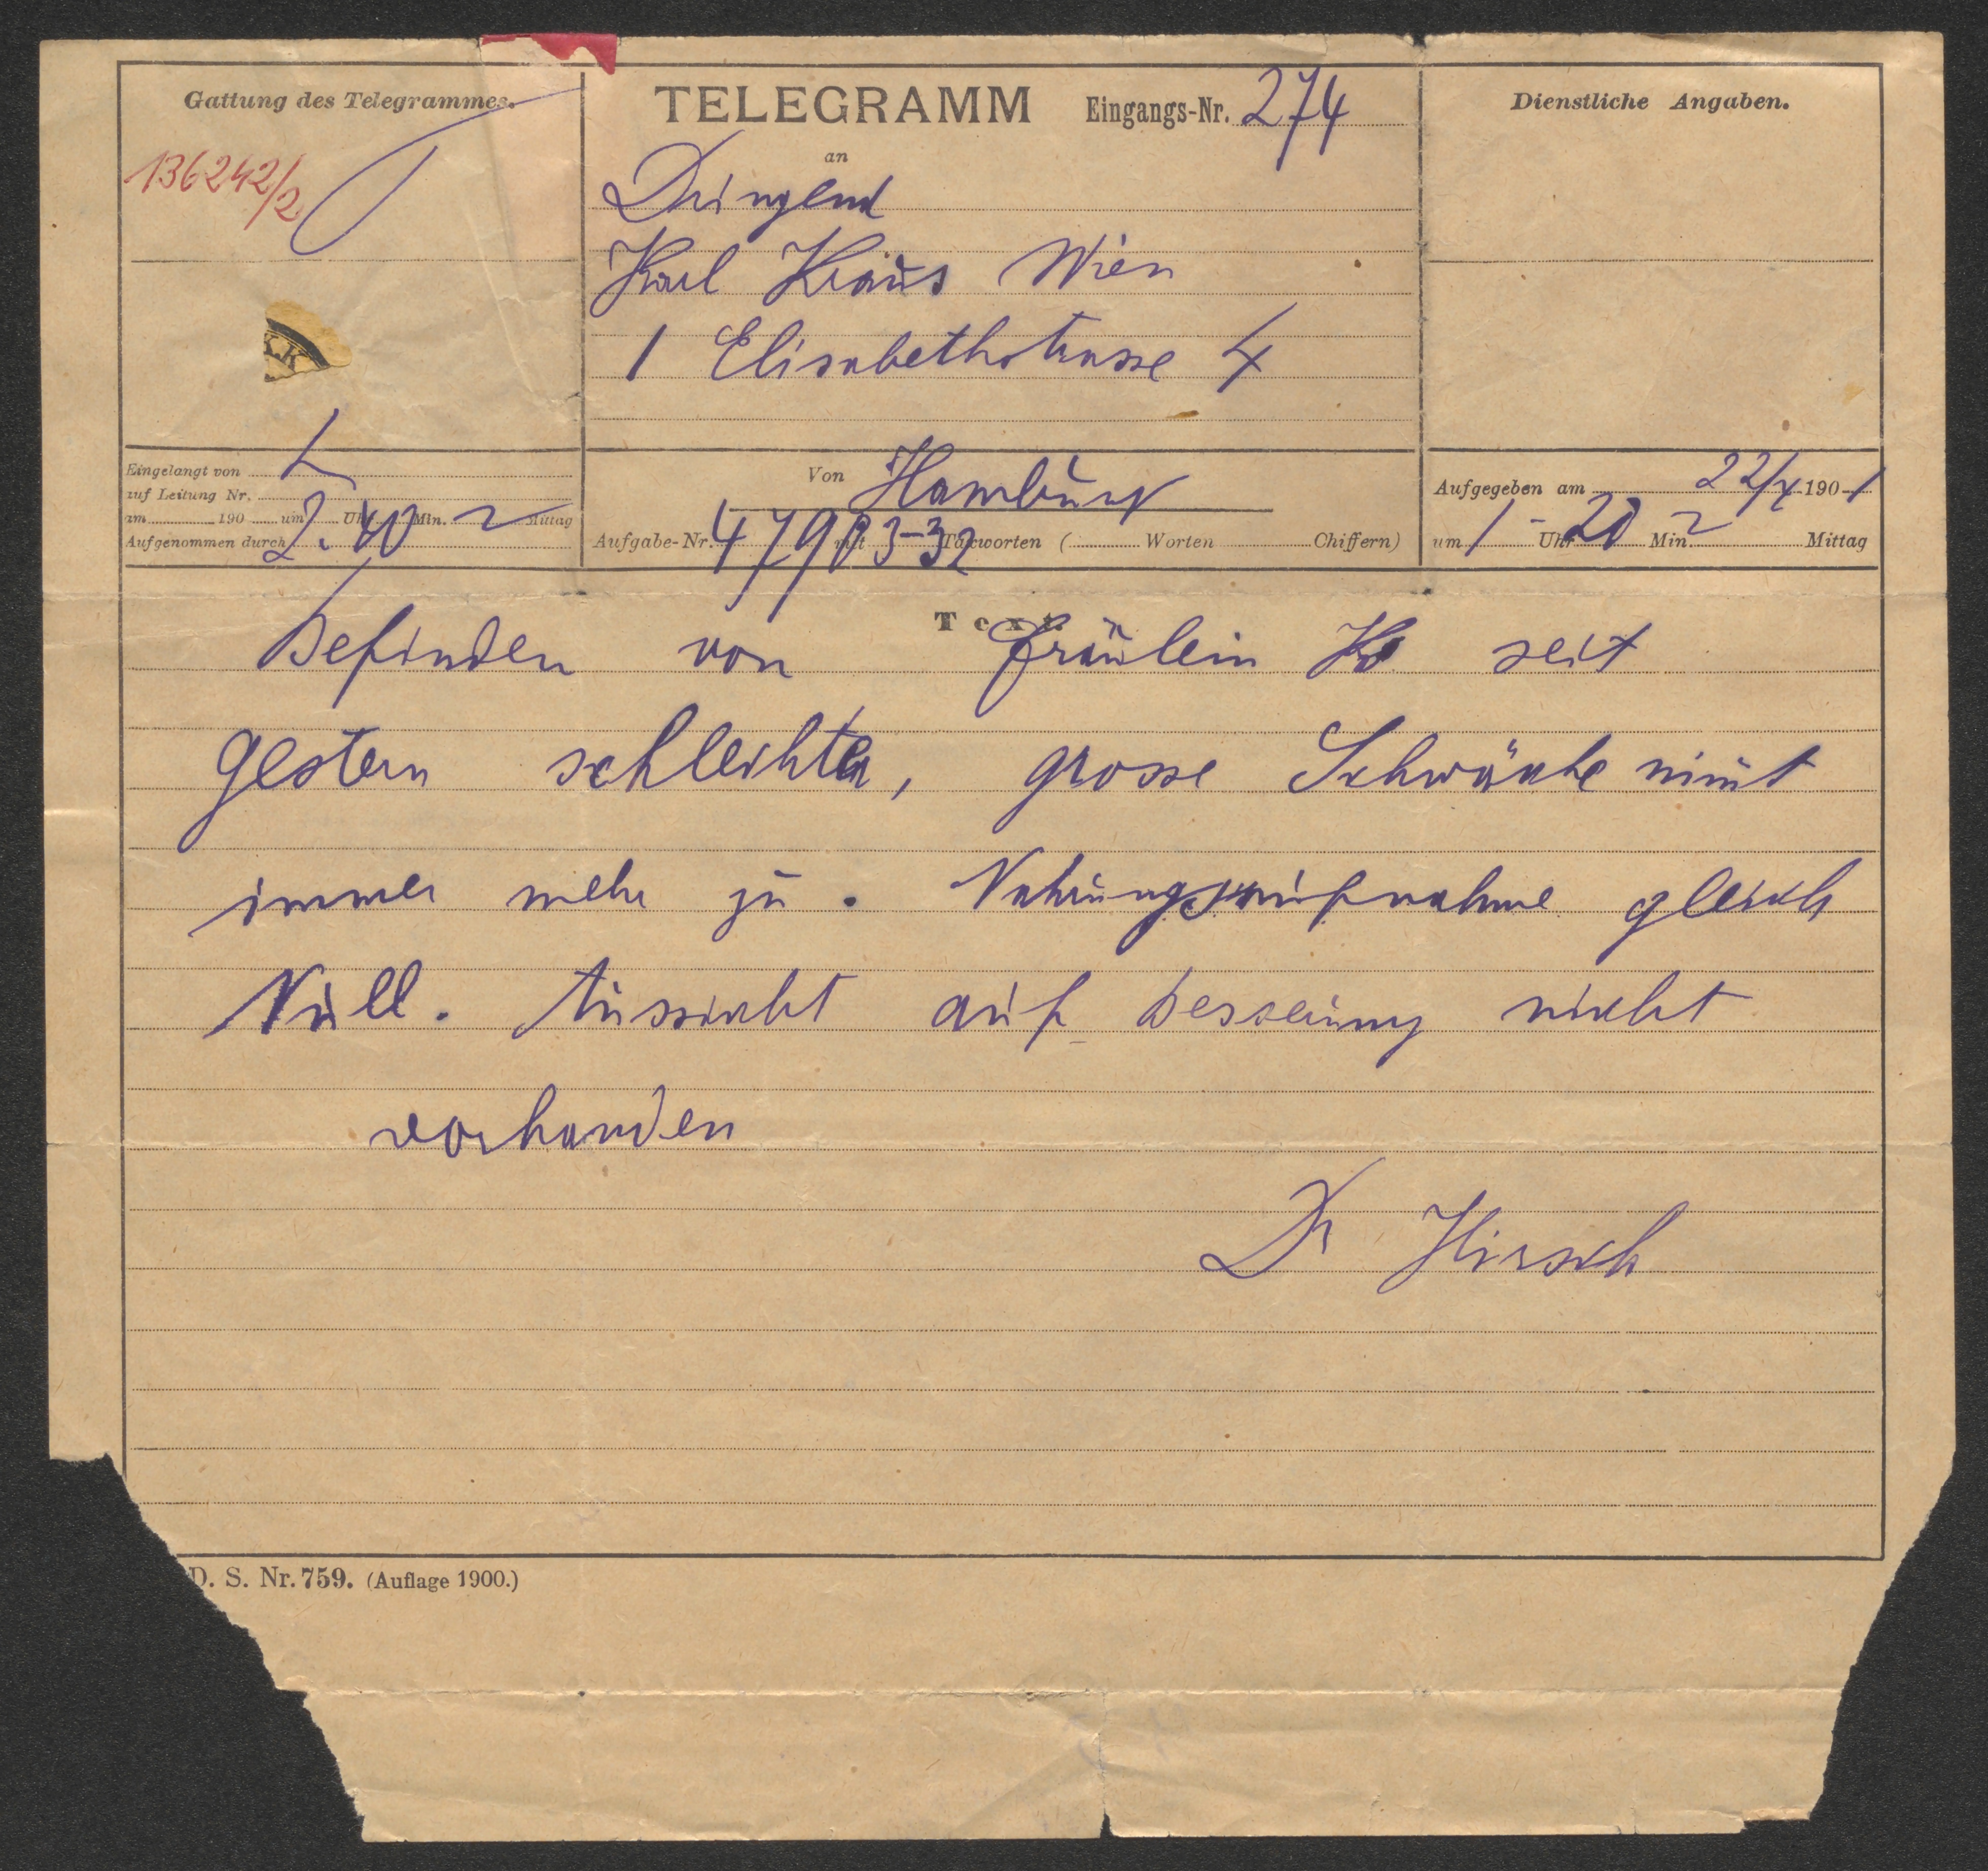 Gattung des Telegrammes.
136242/2
TELEGRAMM Eingangs-Nr. 274
an
Dringend
Karl Kraus Wien
1 Elisabethstrasse 4
Dienstliche Angaben.
Eingelangt von L
auf Leitung Nr.
am 190 um Uhr Min. Mittag
2.40
Aufgenommen durch
Von Hamburg
Aufgabe-Nr. 47903-32 mit Taxworten ( Worten Chiffern)
Aufgegeben am 22/X 1901
um 1 Uhr 20 Min. Mittag
Text.
Befinden von Fräulein K seit
gestern schlechter, grosse Schwäche nim̄t
immer mehr zu. Nahrungsaufnahme gleich
Null. Aussicht auf Besserung nicht
vorhanden
Dr Hirsch
D. S. Nr. 759. (Auflage 1900.)